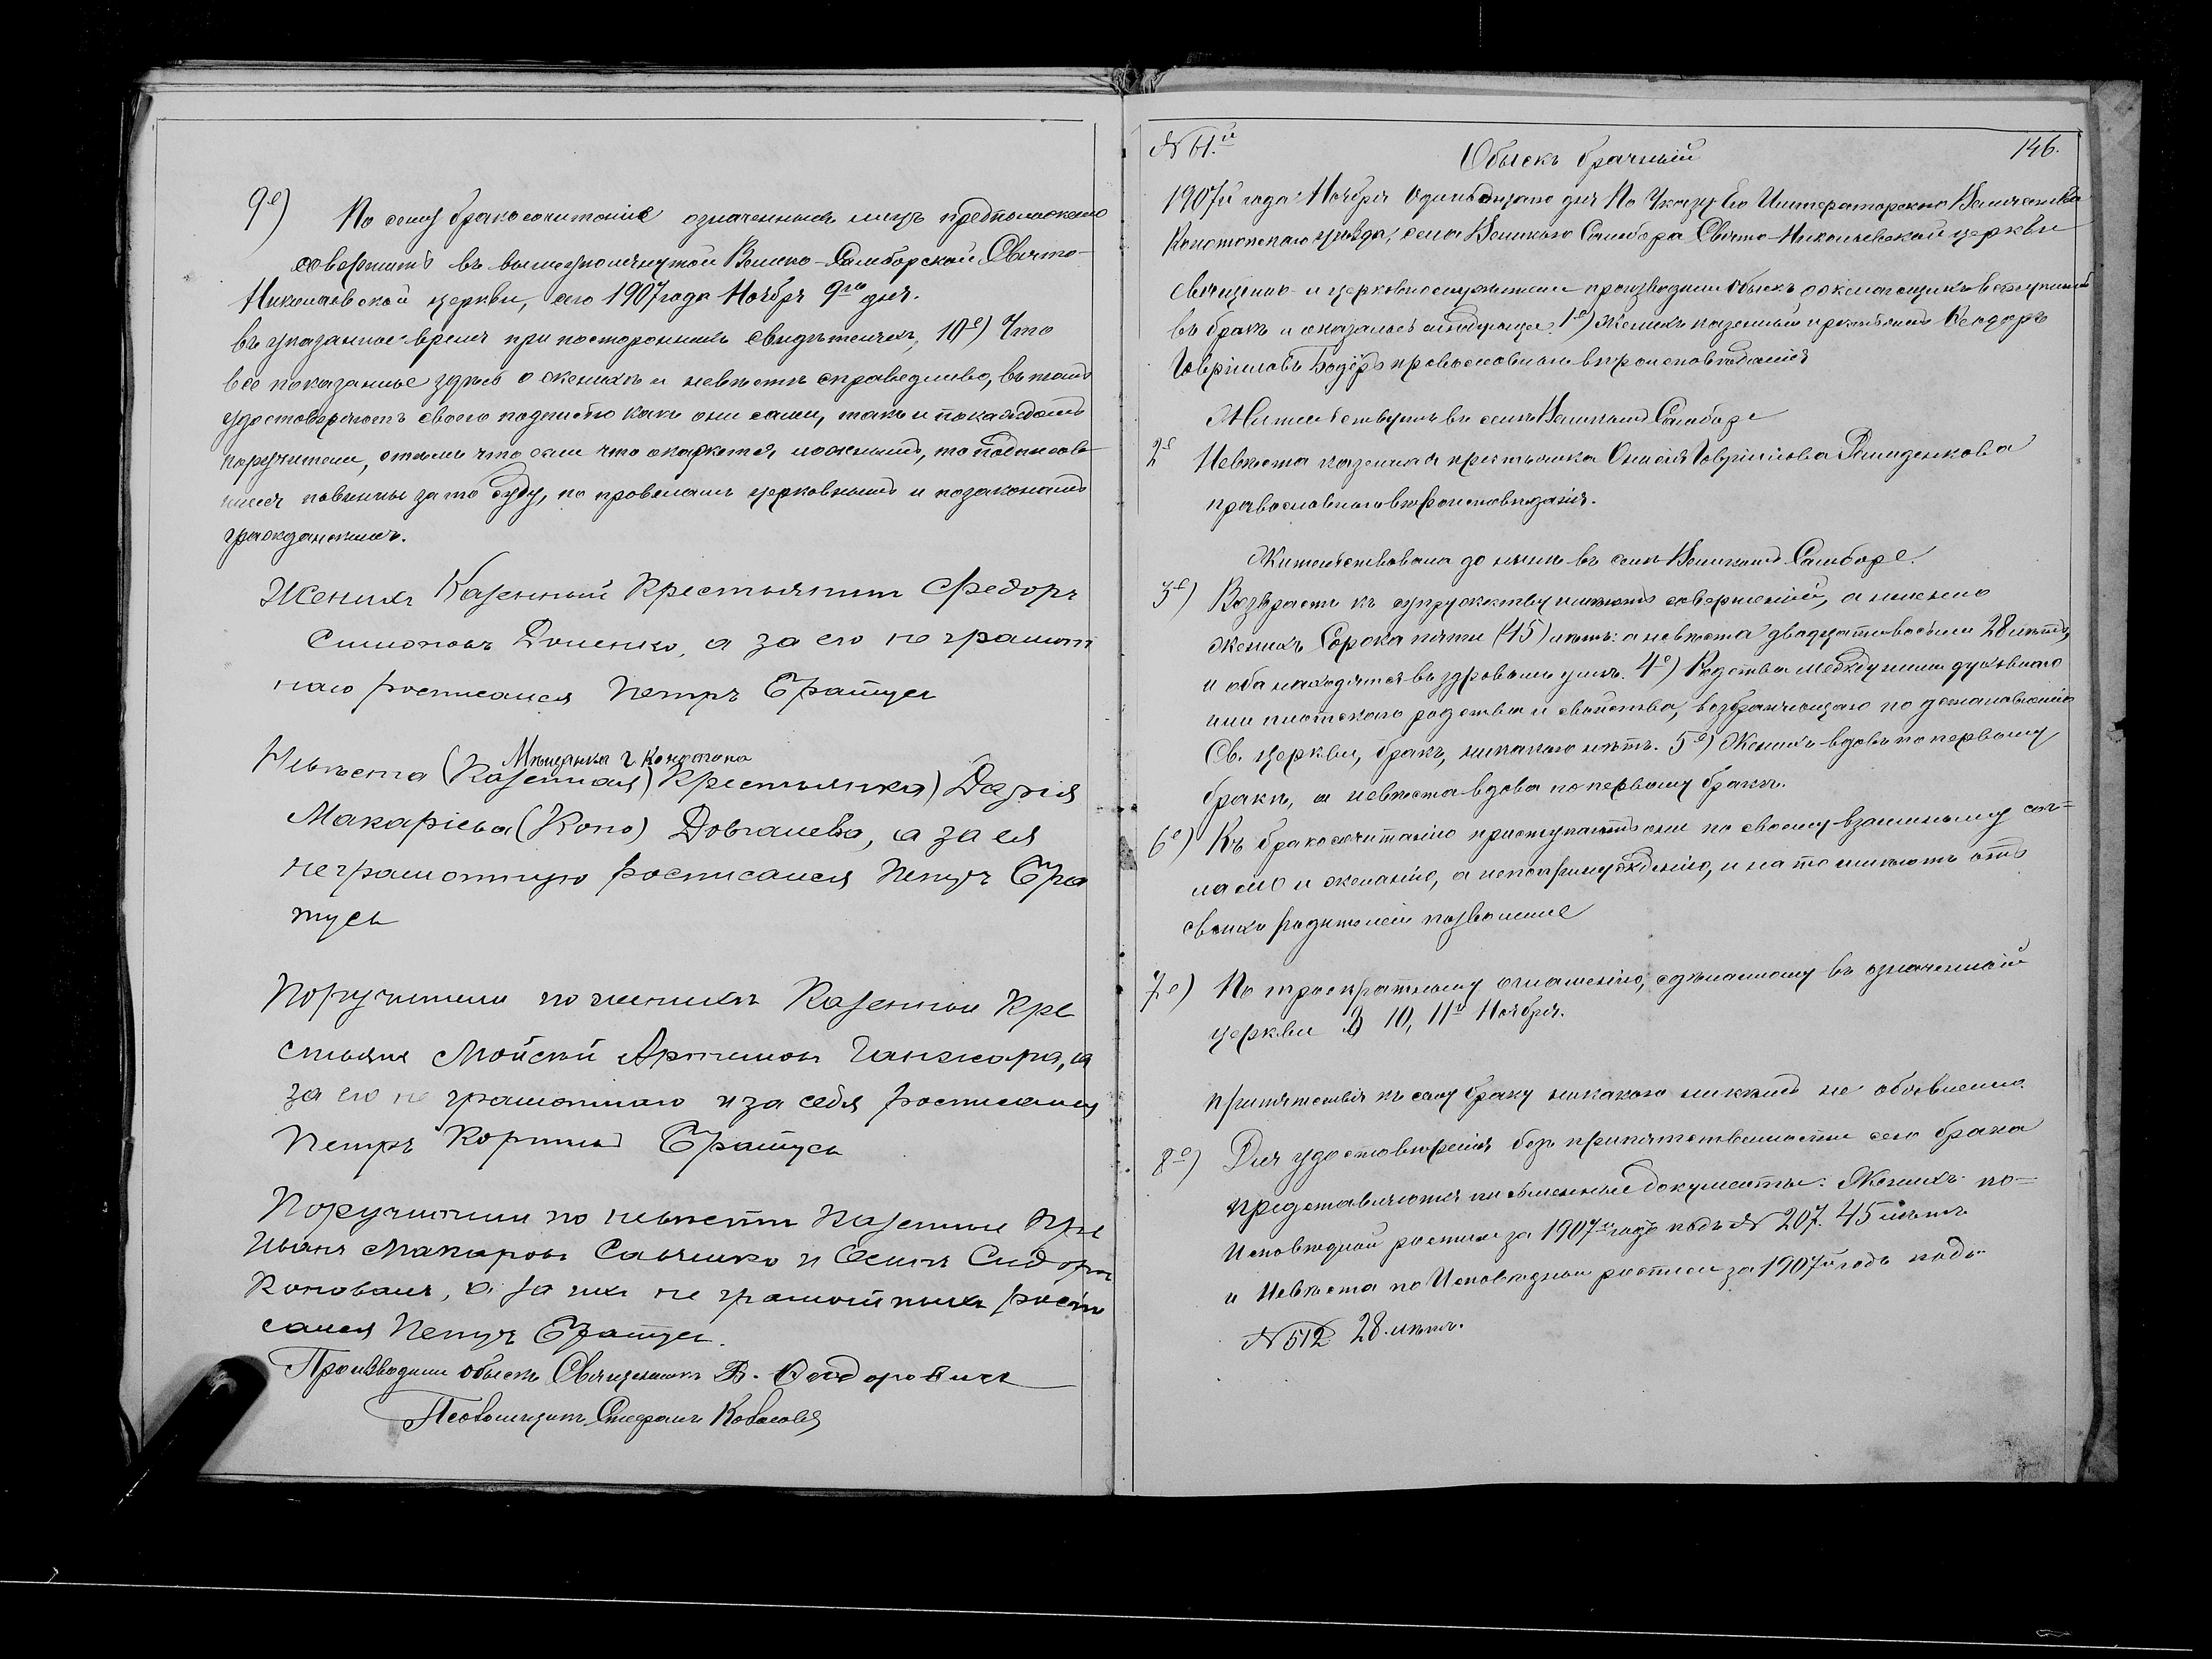 9е) По сему бракосочитание означенныхъ лицъ предположено
совершить въ вышеупомянутой Велико-Самборской Свято-
Николаевской церкви, сего 1907 года Ноября 9го дня.
въ указанное время при постороннихъ свидѣтеляхъ, 10е) Что
все показанное здѣсь о женихѣ и невѣстѣ справедливо, въ томъ
удостоверяютъ своего подписью какъ они сами, такъ и по каждомъ
поручители, стѣмъ что если что окажется ложнымъ, то подписав-
шіеся повинны за то суду, по правиламъ церковнымъ и по законамъ
гражданскимъ.
Женихъ Казенный Крестьянинъ Федоръ
Симоновъ Доценко, а за его не грамот
наго росписался Петръ Братусь
Мѣщанка г. Конотопа
Невѣста (Казенная) Крестьянка) Дарія
Макаріева (Коно) Довгалева, а за ея
неграмотную росписался Петръ Бра
тусь
Поручители по женихѣ Казенныи Кре
стьяне Мойсей Артимовъ Ганжара, а
за его не грамотнаго и за себя росписался
Петръ Братусь
Поручители по невѣсти Казенные Кре
Иванъ Макаровъ Савченко и Осипъ Сидоровъ
Коновалъ, а за ихъ не грамотныхъ роспи
сался Петръ Братусь.
Производили обыскъ Священникъ В.
Псаломщикъ Стефанъ
№ 61.й Обыскъ брачный 146.
1907й года Ноября Одинадцатаго дня По Указу Его Императорскаго Величества
Конотопскаго уѣзда, села Великаго Самбора Свято-Николаевской церкви
священно- и церковнослужители производили обыскъ о желающихъ вступить
въ бракъ и оказалось слѣдующее: 1е) Женихъ казенный крестьянинъ Феодоръ
Гавріиловъ православнаго вѣроисповѣданія
Жительствуетъ въ селѣ Великомъ Самборе
2е Невѣста казенная крестьянка Гавріилова
православнаго вѣроисповѣданія.
Жительствовала до нынѣ въ селѣ Великомъ Самборе.
3е) Возврастъ къ супружеству имѣютъ совершенный, а именно
женихъ Сорока пяти (45) лѣтъ: а невѣста двадцати восьми 28 лѣтъ,
и оба находятся въ здровомъ умѣ. 4е) Родства между ними духовнаго
или плотскаго родства и свойства, возбраняющаго по установленію
Св. церкви, бракъ, никакого нѣтъ. 5е) Женихъ вдовъ по первому
бракѣ, а невѣста вдова по первому бракѣ.
6е) Къ бракосочитанію приступаютъ они по своему взаимному сог-
ласію и желанію, а не по принужденію, и на то имѣютъ отъ
своихъ родителей позволение
7е) По троекратному оглашенію, сдѣланному въ означенной
церкви 10, 11го Ноября.
препятствія къ сему браку никакого никѣмъ не объявлено.
8е) Для удостовѣренія безпрепятственности сего брака
представляются письменные документы: Женихъ по-
Исповѣдной росписи за 1907й годъ подъ № 207. 45 лѣтъ
и Невѣста по Исповѣдной росписи за 1907й годъ подъ
№ 512 28 лѣтъ.